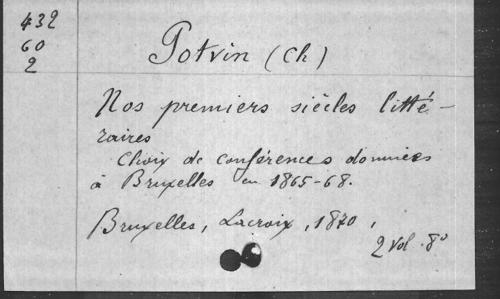 432
60
2
Potvin (Ch)
Nos premiers siècles litté-
raires
Choix de conférences données
à Bruxelles en 1865-68.
Bruxelles, Lacroix, 1870,
2 vol. 8°